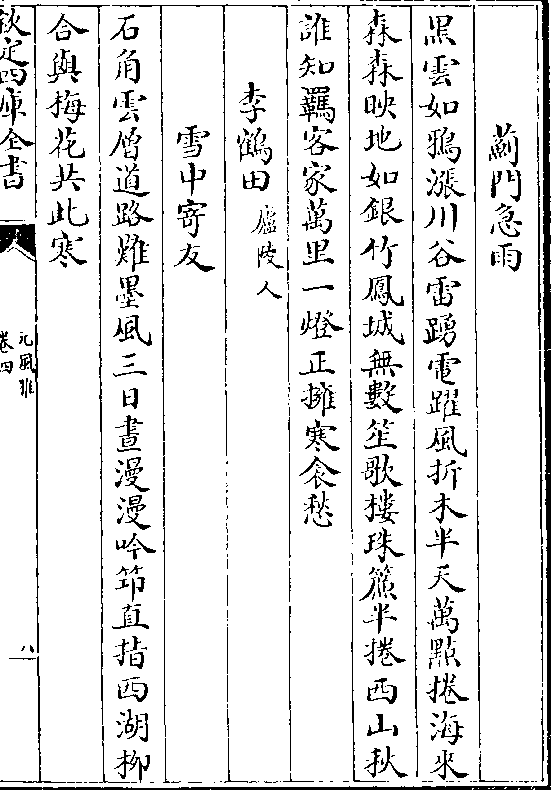 薊門急雨
黒雲如鴉漲川谷雷踴電躍風折木半天萬點捲海來
森森映地如銀竹鳳城無數笙歌樓珠簾半捲西山秋
誰知羈客家萬里一燈正擁寒衾愁
李鶴田廬陵人
雪中寄友
石角雲僧道路難墨風三日晝漫漫吟笻直指西湖柳
合與梅花共此寒
欽定四庫全書
元風雅
卷四
八